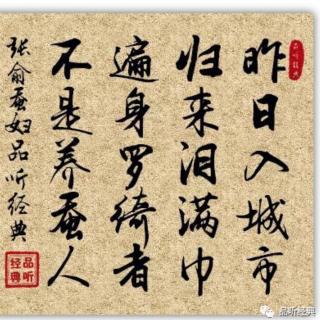 昨日入城市
归来泪满巾
遍身罗绮者
不是养蚕人
张俞蚕妇品听经典
品听经典
品听经典